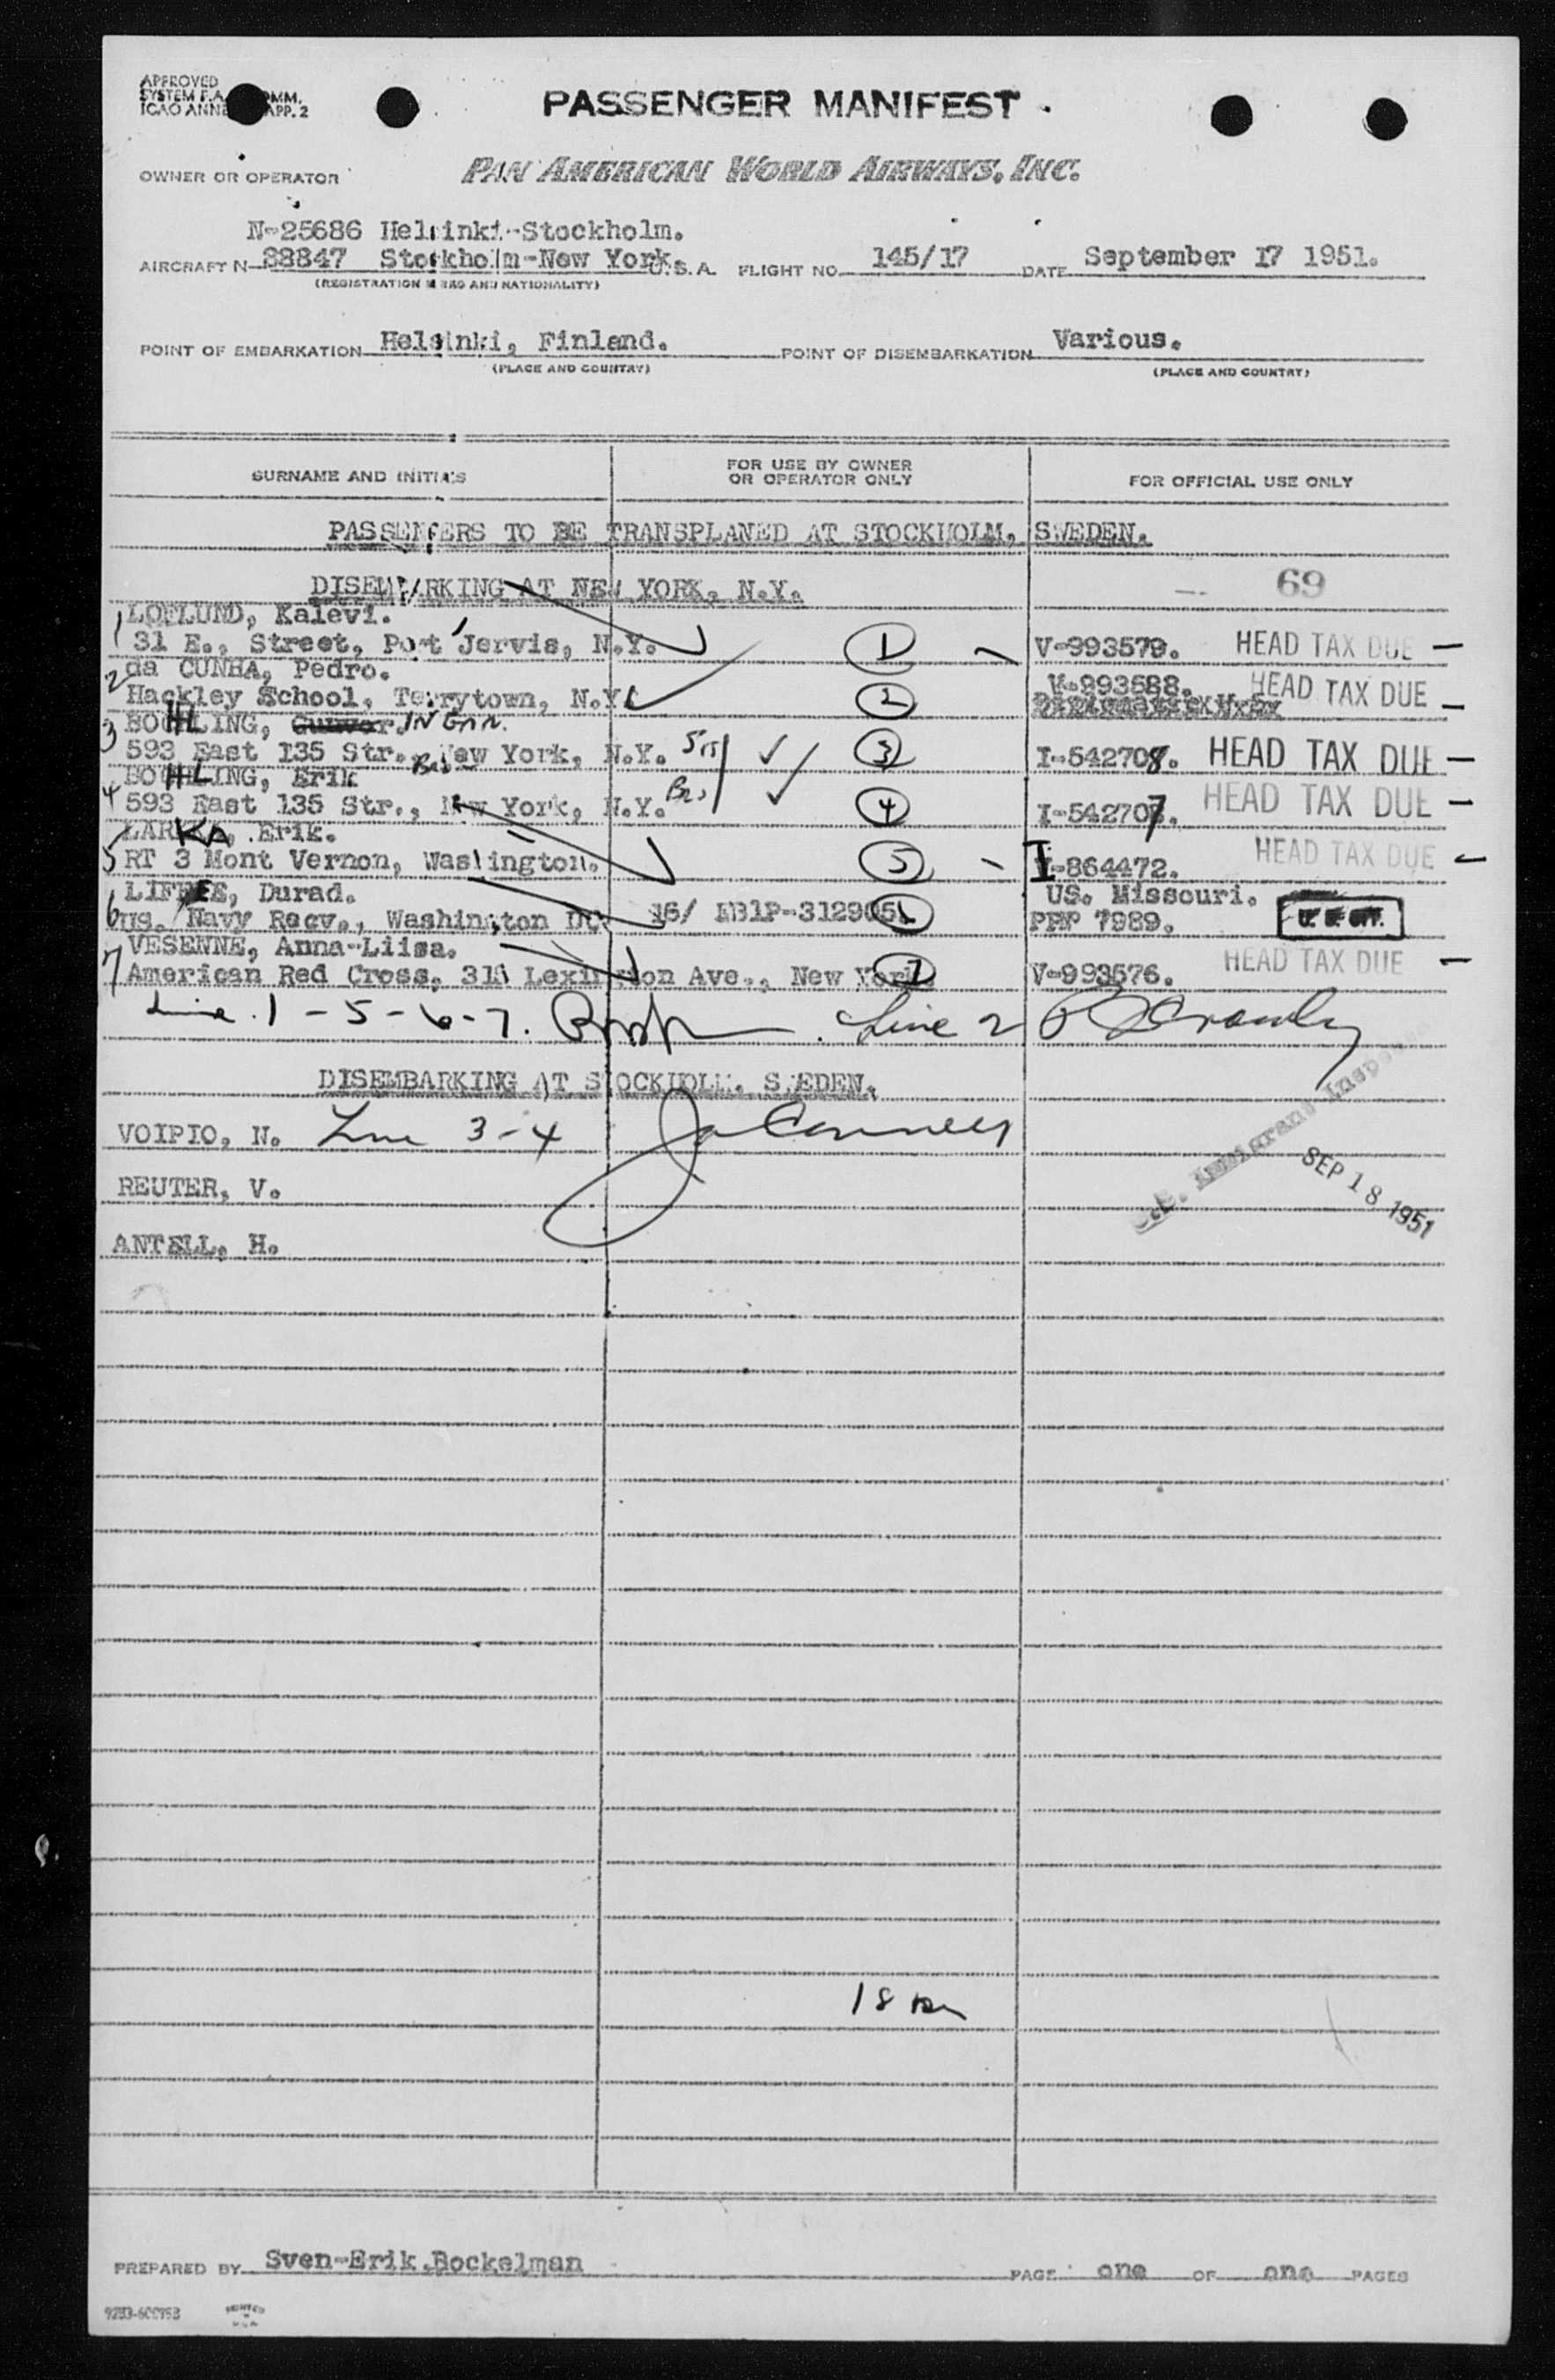 APPROVED
SYSTEM F.A. COMM.
ICAO ANNE APP. 2
PASSENGER MANIFEST
OWNER OR OPERATOR PAN AMERICAN WORLD AIRWAYS, INC.
N-25686 Helsinki-Stockholm.
AIRCRAFT N 88847 Stockholm-New York U.S.A. FLIGHT NO. 145/17 DATE September 17 1951.
(REGISTRATION MARKS AND NATIONALITY)
POINT OF EMBARKATION Helsinki, Finland. POINT OF DISEMBARKATION Various.
(PLACE AND COUNTRY) (PLACE AND COUNTRY)
SURNAME AND INITIALS FOR USE BY OWNER OR OPERATOR ONLY FOR OFFICIAL USE ONLY
PASSENGERS TO BE TRANSPLANED AT STOCKHOLM, SWEDEN.
DISEMBARKING AT NEW YORK, N.Y. 69
1 LOFLUND, Kalevi.
31 E., Street, Port Jervis, N.Y. 1 V-993579. HEAD TAX DUE
2 da CUNHA, Pedro.
Hackley School, Terrytown, N.Y. 2 V-993588. HEAD TAX DUE
3 BOHLING, INGAR.
593 East 135 Str., New York, N.Y. 3 I-542708. HEAD TAX DUE
4 BOHLING, Erik
593 East 135 Str., New York, N.Y. Bro 4 I-542707. HEAD TAX DUE
5 LARKA, Erik.
RT 3 Mont Vernon, Washington. 5 I-864472. HEAD TAX DUE
6 Durad. US. Missouri.
US. Navy Recv., Washington DC. 7989. U. S. CIT.
7 VESENNE, Anna-Liisa.
American Red Cross, 315 Lexington Ave., New York. 7 V-993576. HEAD TAX DUE
Line 1-5-6-7. Line 2
DISEMBARKING AT STOCKHOLM, SWEDEN.
VOIPIO, N. Line 3-4
U.S. Immigrant Inspector
SEP 18 1951
REUTER, V.
ANTELL, H.
18
PREPARED BY Sven-Erik Bockelman PAGE one OF one PAGES
PRINTED IN U.S.A.